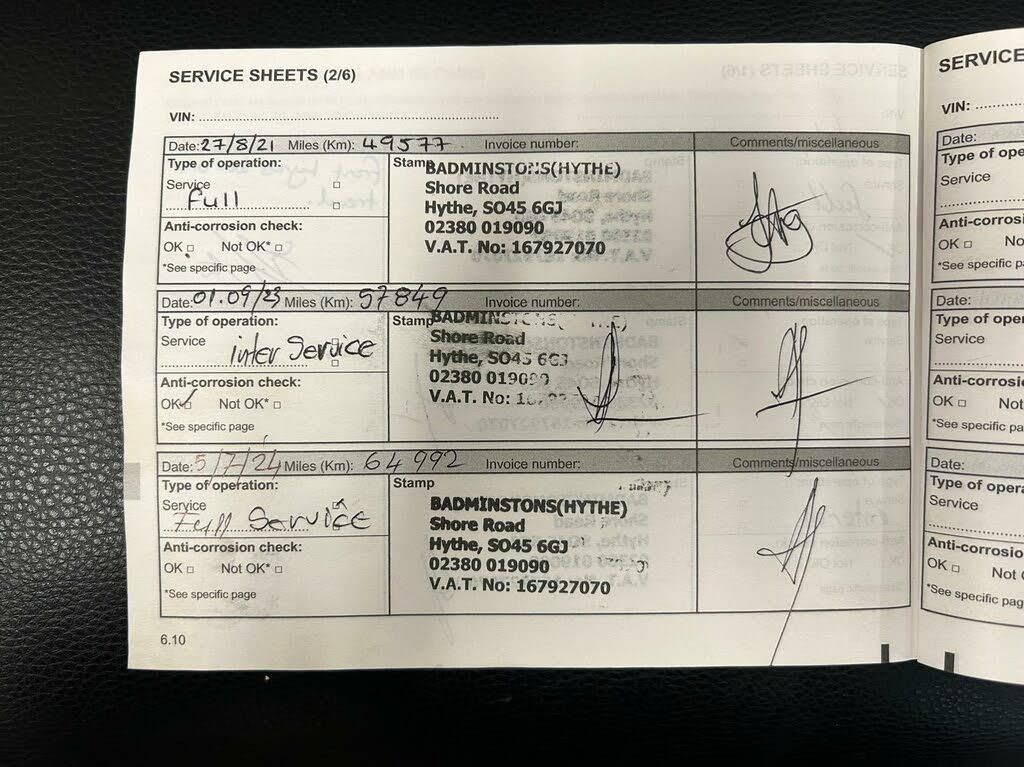 SERVICE SHEETS (2/6)
VIN:
Date: 27/8/21 Miles (Km): 49577 Invoice number: Comments/miscellaneous
Type of operation:
Service
Full
Anti-corrosion check:
OK □ Not OK* □
*See specific page
Stamp
BADMINSTONS(HYTHE)
Shore Road
Hythe, SO45 6GJ
02380 019090
V.A.T. No: 167927070
Date: 01.09/23 Miles (Km): 57849 Invoice number: Comments/miscellaneous
Type of operation:
Service
inter Service
Anti-corrosion check:
OK ✓ Not OK* □
*See specific page
Stamp
BADMINSTONS(HYTHE)
Shore Road
Hythe, SO45 6GJ
02380 019090
V.A.T. No:
Date: 5/7/24 Miles (Km): 64992 Invoice number: Comments/miscellaneous
Type of operation:
Service
Full Service
Anti-corrosion check:
OK □ Not OK* □
*See specific page
Stamp
BADMINSTONS(HYTHE)
Shore Road
Hythe, SO45 6GJ
02380 019090
V.A.T. No: 167927070
6.10
SERVICE
VIN:
Date:
Type of ope
Service
Anti-corros
OK □ No
*See specific p
Date:
Type of ope
Service
Anti-corrosio
OK □ Not
*See specific pa
Date:
Type of opera
Service
Anti-corrosio
OK □ Not
*See specific pag